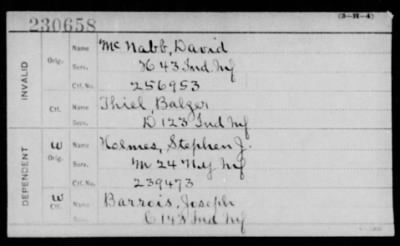 230658
(3-H-4)
INVALID
Orig. Name McNabb, David
Serv. K 43 Ind Inf
Ctf. No. 256953
Ctf. Name Thiel, Balzer
Serv. D 123 Ind Inf
DEPENDENT
W Orig. Name Holmes, Stephen J.
Serv. M 24 N.Y Inf
Ctf. No. 239473
W Ctf. Name Barrois, Joseph
Serv. C 143 Ind Inf